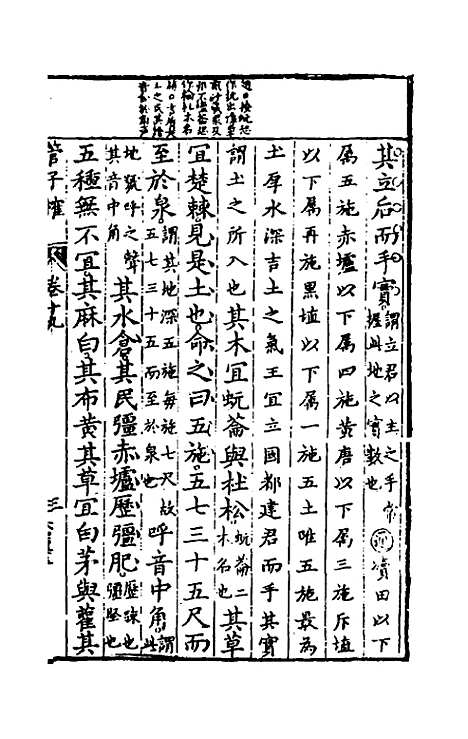 其立后而手實謂立君以主之手常握此地之實數也瀆田以下
屬五施赤壚以下屬四施黃唐以下屬三施斥埴
以下屬再施黑埴以下屬一施五土唯五施最為
土厚水深吉土之氣王宜立國都建君而手其實
謂土之所入也其木宜蚖菕與杜松蚖菕二木名也其草
宜楚棘見是土也命之曰五施五七三十五尺而
至於泉謂其地深五施每施七尺故五七三十五而至於泉也呼音中角謂此
地號呼之聲其音中角其水倉其民彊赤壚歷彊肥歷疎也彊堅也
五種無不宜其麻白其布黃其草宜白茅與雚其
管子榷
卷十九
三